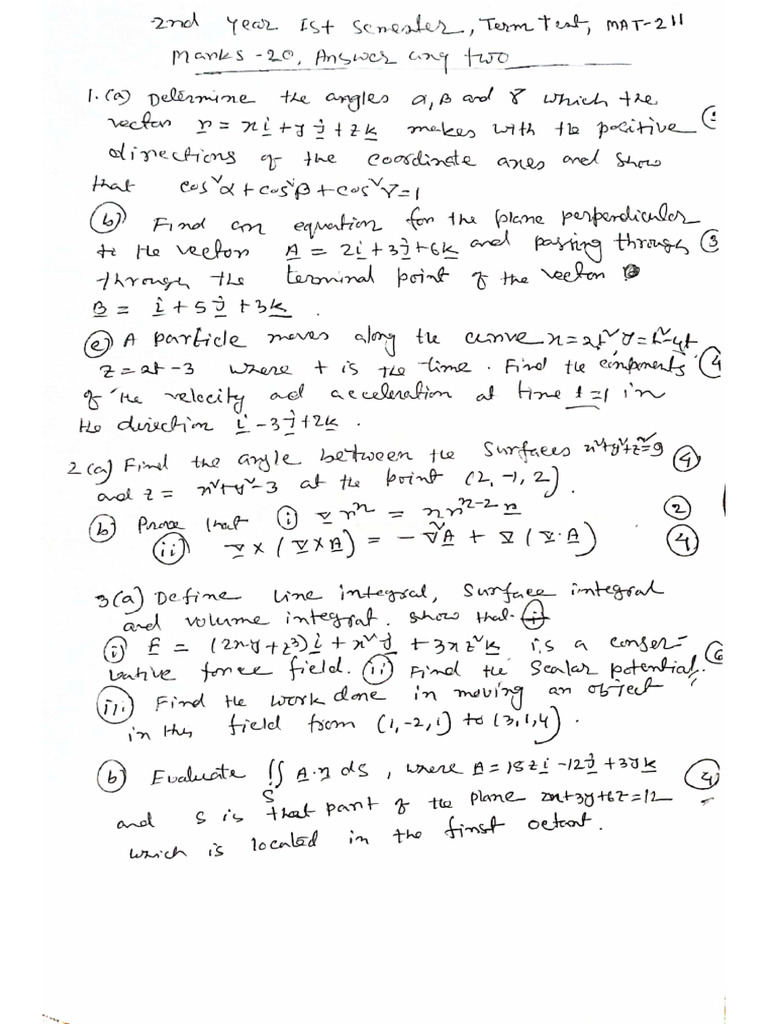 2nd Year 1st Semester, Term Test, MAT-211
Marks-20, Answer any two
1.(a) Determine the angles α, β and γ which the
vector r = xi + yj + zk makes with the positive
directions of the coordinate axes and show
that cos²α + cos²β + cos²γ = 1
(b) Find an equation for the plane perpendicular
to the vector A = 2i + 3j + 6k and passing through (3
through the terminal point of the vector
B = i + 5j + 3k.
(c) A particle moves along the curve x = 2t² y = t²-4t
z = 2t - 3 where t is the time. Find the components (4
of the velocity and acceleration at time t=1 in
the direction i - 3j + 2k.
2(a) Find the angle between the surfaces x²+y²+z²=9 (4)
and z = x²+y²-3 at the point (2, -1, 2).
(b) Prove that (i) ∇rⁿ = nrⁿ⁻² r (2)
(ii) ∇ × (∇ × A) = - ∇²A + ∇ (∇·A) (4)
3(a) Define line integral, surface integral
and volume integral. Show that
(i) F = (2xy + z³)i + x²j + 3xz²k is a conser-
vative force field. (ii) Find the scalar potential. (6
(iii) Find the work done in moving an object
in this field from (1, -2, 1) to (3, 1, 4).
(b) Evaluate ∬ A·n ds, where A = 18zi - 12j + 3yk (4)
S
and S is that part of the plane 2x+3y+6z=12
which is located in the first octant.